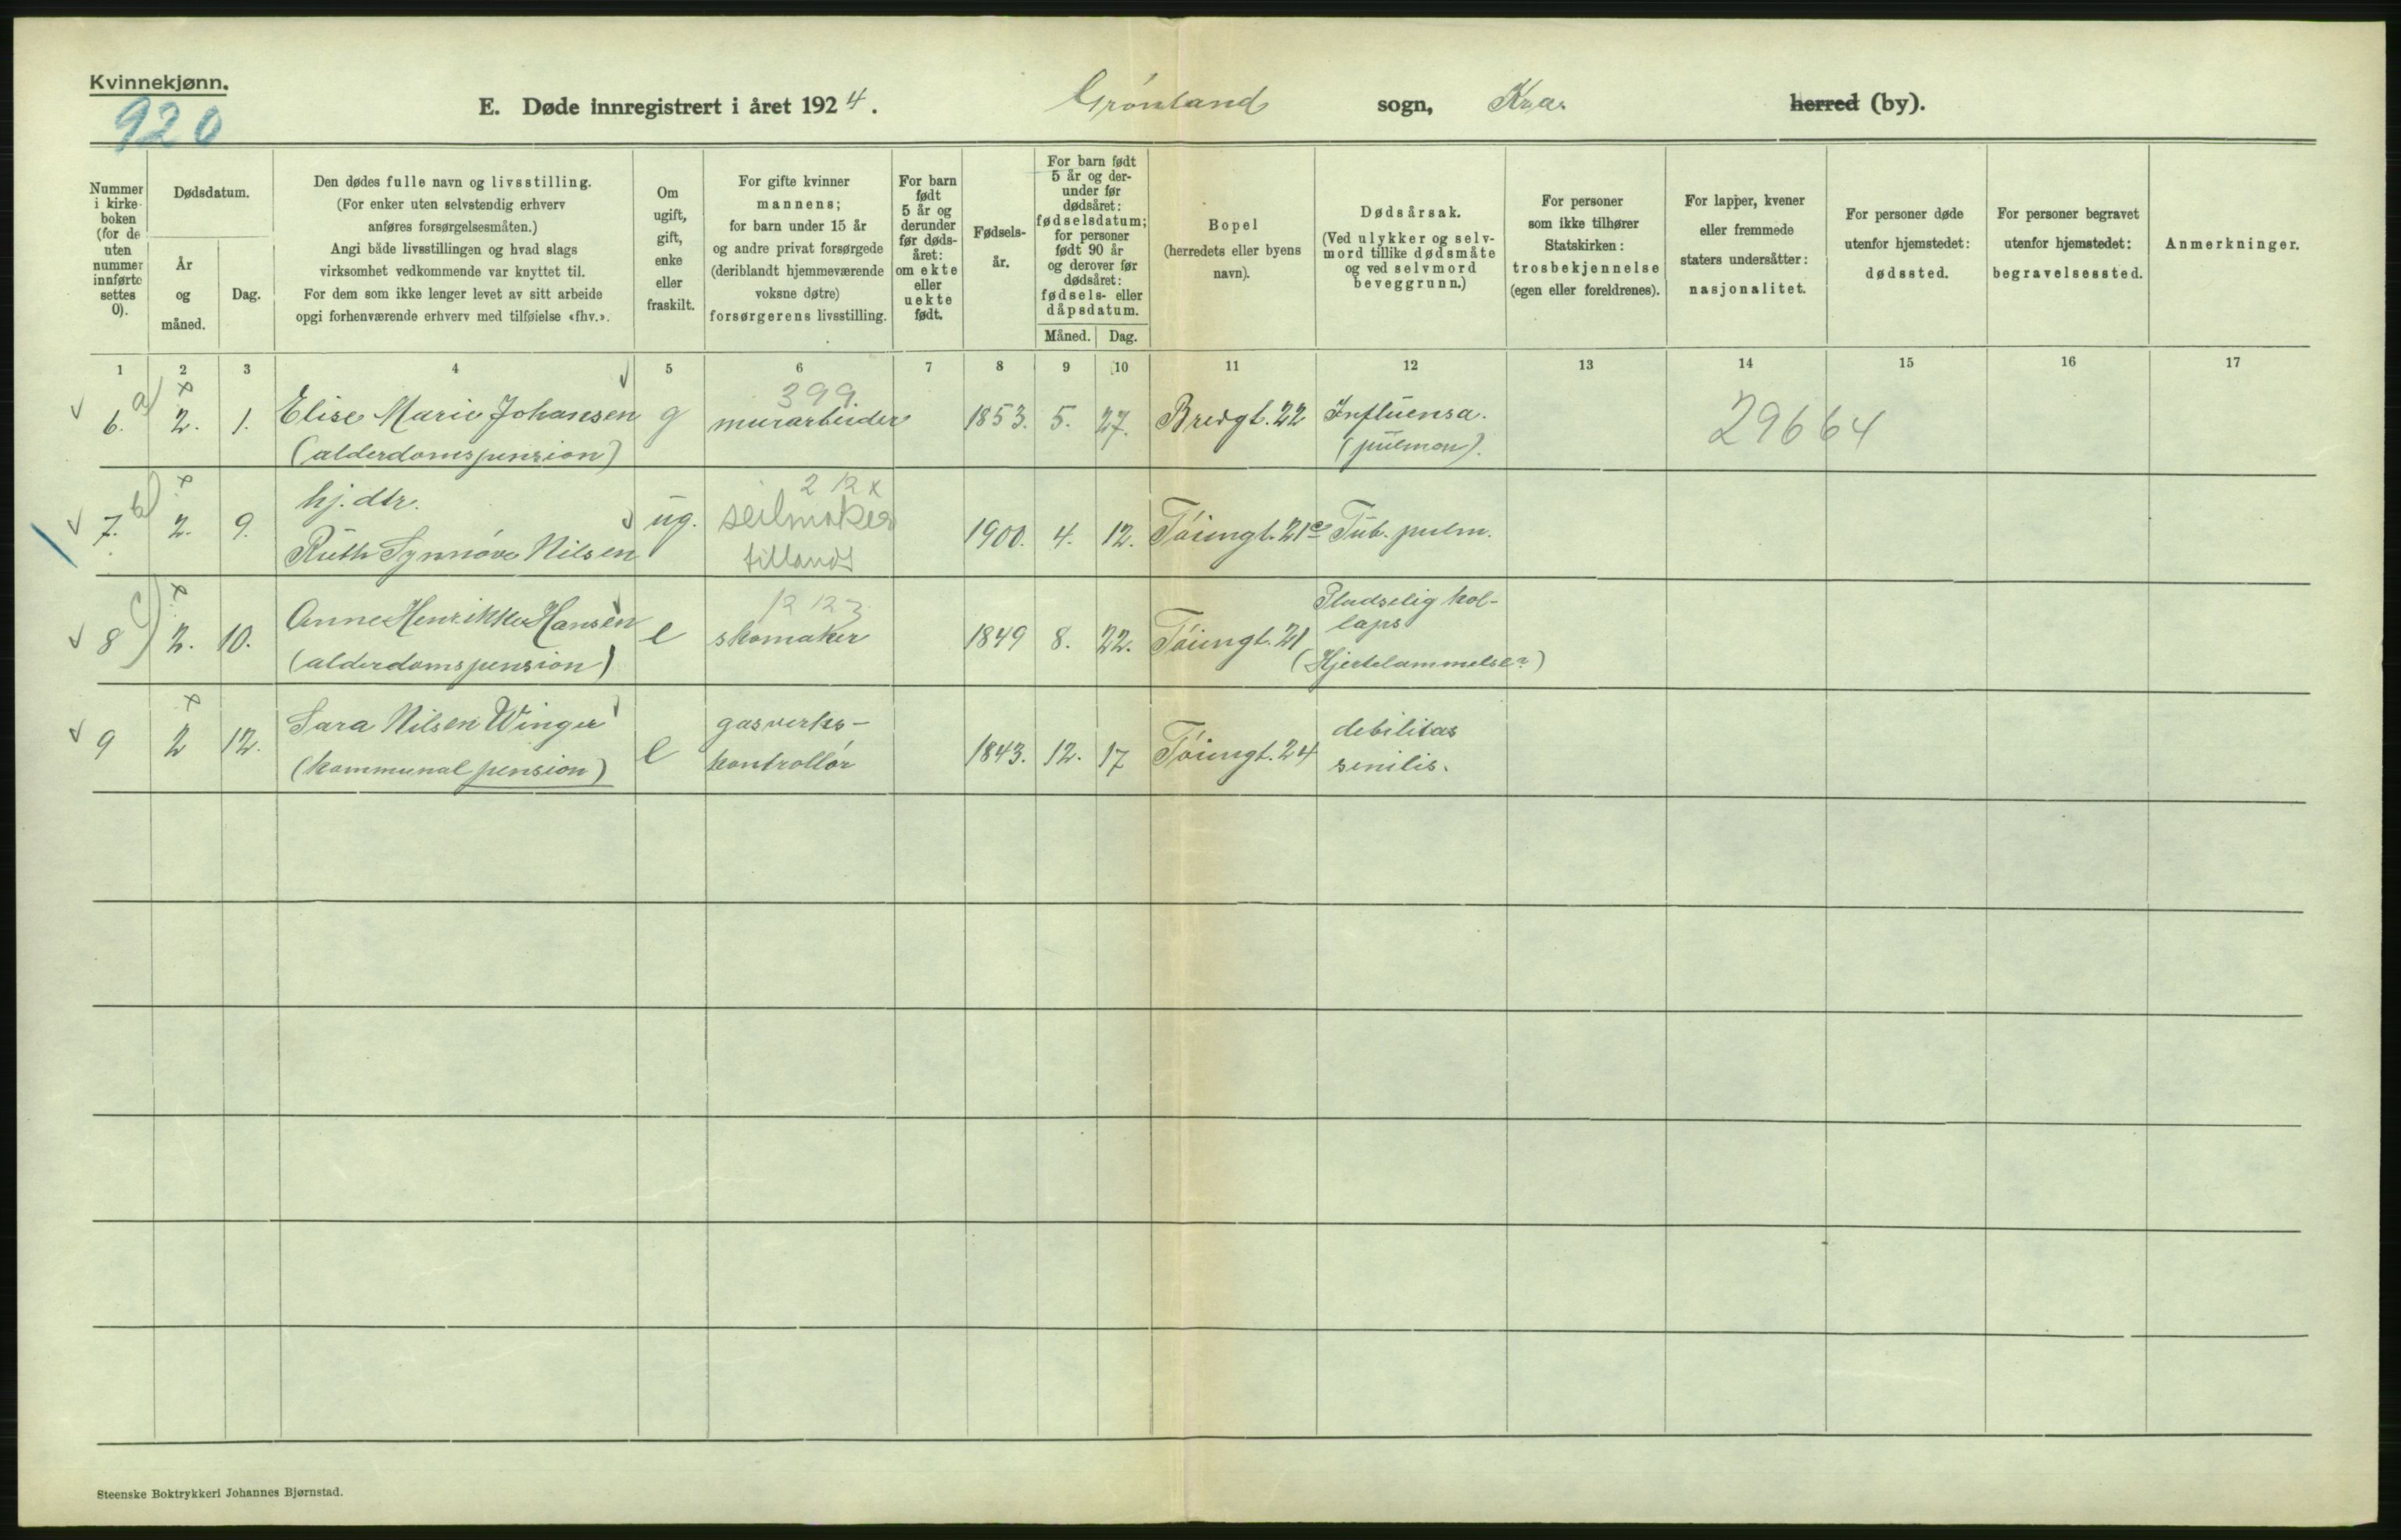 Kvinnekjønn.
920
E. Døde innregistrert i året 1924.
Grønland sogn, Kra. herred (by).
Nummer i kirke-boken (for de uten nummer innførte settes 0).
Dødsdatum.
År og måned.
Dag.
Den dødes fulle navn og livsstilling.
(For enker uten selvstendig erhverv
anføres forsørgelsesmåten.)
Angi både livsstillingen og hvad slags
virksomhet vedkommende var knyttet til.
For dem som ikke lenger levet av sitt arbeide
opgi forhenværende erhverv med tilføielse «fhv.».
Om
ugift,
gift,
enke
eller
fraskilt.
For gifte kvinner
mannens;
for barn under 15 år
og andre privat forsørgede
(deriblandt hjemmeværende
voksne døtre)
forsørgerens livsstilling.
For barn
født
5 år og
derunder
før døds-
året:
om ekte
eller
uekte
født.
Fødsels-
år.
For barn født
5 år og der-
under før
dødsåret:
fødselsdatum;
for personer
født 90 år
og derover før
dødsåret:
fødsels- eller
dåpsdatum.
Måned. Dag.
Bopel
(herredets eller byens
navn).
Dødsårsak.
(Ved ulykker og selv-
mord tillike dødsmåte
og ved selvmord
beveggrunn.)
For personer
som ikke tilhører
Statskirken:
trosbekjennelse
(egen eller foreldrenes).
For lapper, kvener
eller fremmede
staters undersåtter:
nasjonalitet.
For personer døde
utenfor hjemstedet:
dødssted.
For personer begravet
utenfor hjemstedet:
begravelsessted.
Anmerkninger.
1 2 3 4 5 6 7 8 9 10 11 12 13 14 15 16 17
a) x 399.
6. 2. 1. Elise Marie Johansen g murarbeider 1853. 5. 27. Bredgt. 22 Influensa. 29664
(alderdomspension) (pulmon).
b) x hj. dtr. 212x
7. 2. 9. Ruth Synnøve Nilsen ug. seilmaker 1900. 4. 12. Tøiengt. 21c Tub. pulm.
tillands
c) x 12 123 Pludselig kol-
8 2. 10. Anne Henrikke Hansen e skomaker 1849 8. 22. Tøiengt. 21 laps
(alderdomspension) (Hjertelammelse?)
x
9 2 12. Sara Nilsen Winger e gasverks- 1843. 12. 17 Tøiengt. 24 debilitas
(kommunal pension) kontrollør senilis.
Steenske Boktrykkeri Johannes Bjørnstad.